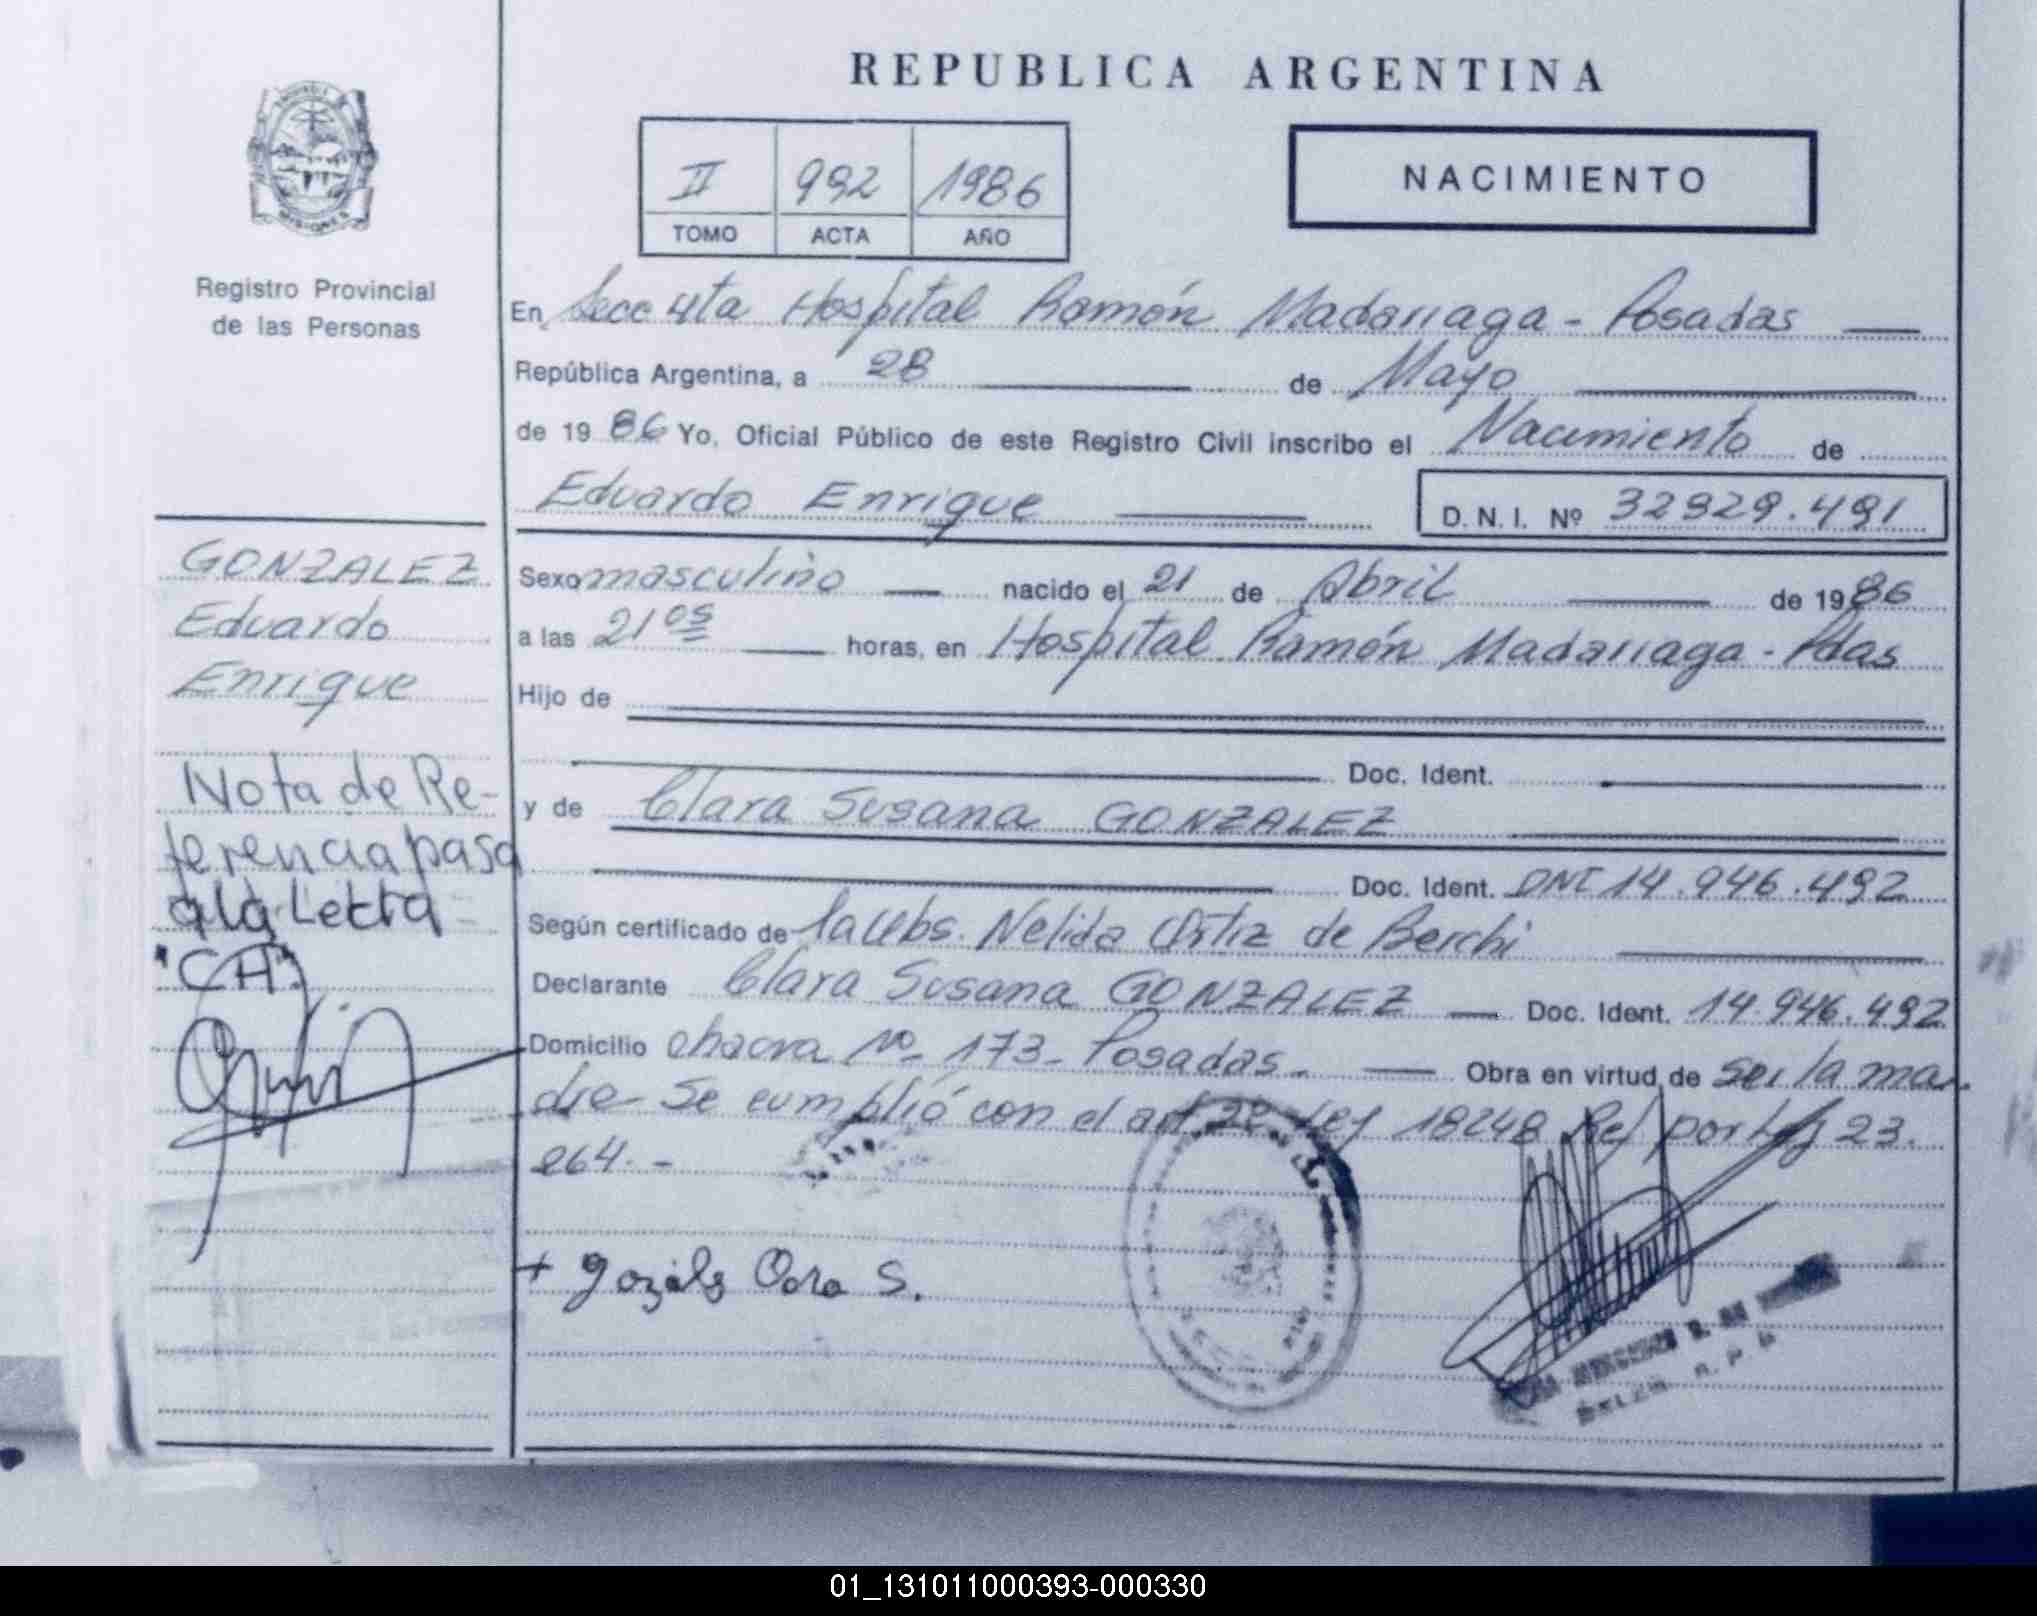 REPUBLICA ARGENTINA
II 992 1986
TOMO ACTA AÑO
NACIMIENTO
MISIONES
Registro Provincial
de las Personas
En Secc 4ta Hospital Ramón Madariaga - Posadas
República Argentina, a 28 de Mayo
de 19 86 Yo, Oficial Público de este Registro Civil inscribo el Nacimiento de
Eduardo Enrique
D.N.I. Nº 32929.491
GONZALEZ
Eduardo
Enrique
Nota de Re-
ferencia pasa
a la Letra
"CH"
Sexo masculino nacido el 21 de Abril de 1986
a las 21 05 horas, en Hospital Ramón Madariaga - Pdas
Hijo de
Doc. Ident.
y de Clara Susana GONZALEZ
Doc. Ident. DNI 14.946.492
Según certificado de Nelida Ortiz de Berchi
Declarante Clara Susana GONZALEZ Doc. Ident. 14.946.492
Domicilio chacra Nº 173 - Posadas. Obra en virtud de ser la ma
dre - Se cumplió con el art 2º Ley 18248 Ref por Ley 23.
264. -
+ Clara S.
01_131011000393-000330